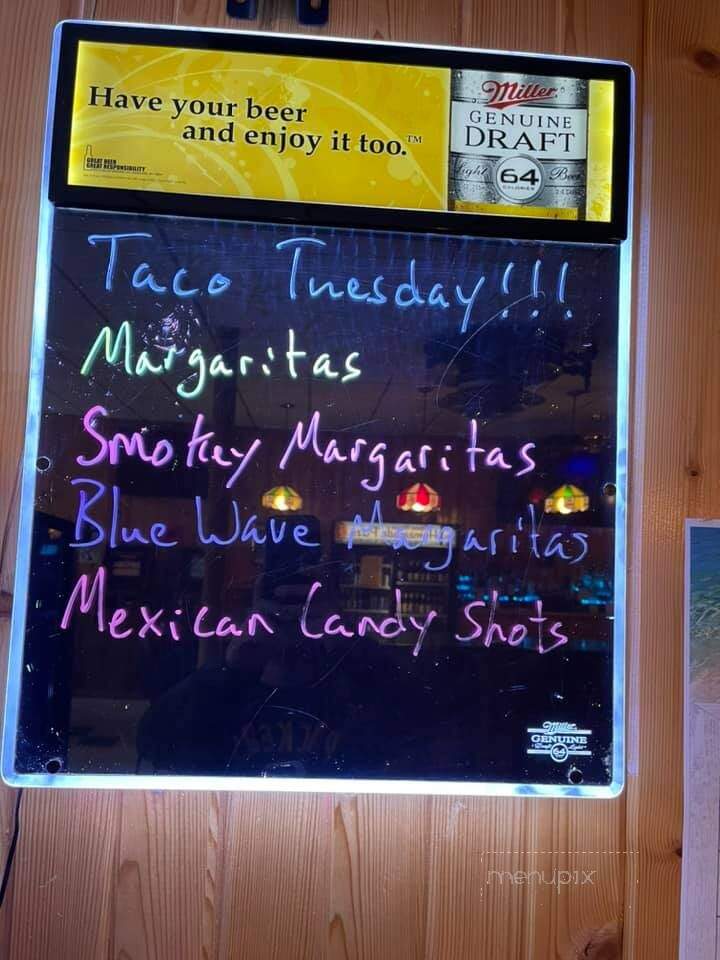 Have your beer
and enjoy it too.™
GREAT BEER
GREAT RESPONSIBILITY
Miller
GENUINE
DRAFT
Light 64 Beer
CALORIES
Taco Tuesday!!!
Margaritas
Smokey Margaritas
Blue Wave Margaritas
Mexican Candy Shots
Miller
GENUINE
64
menupix